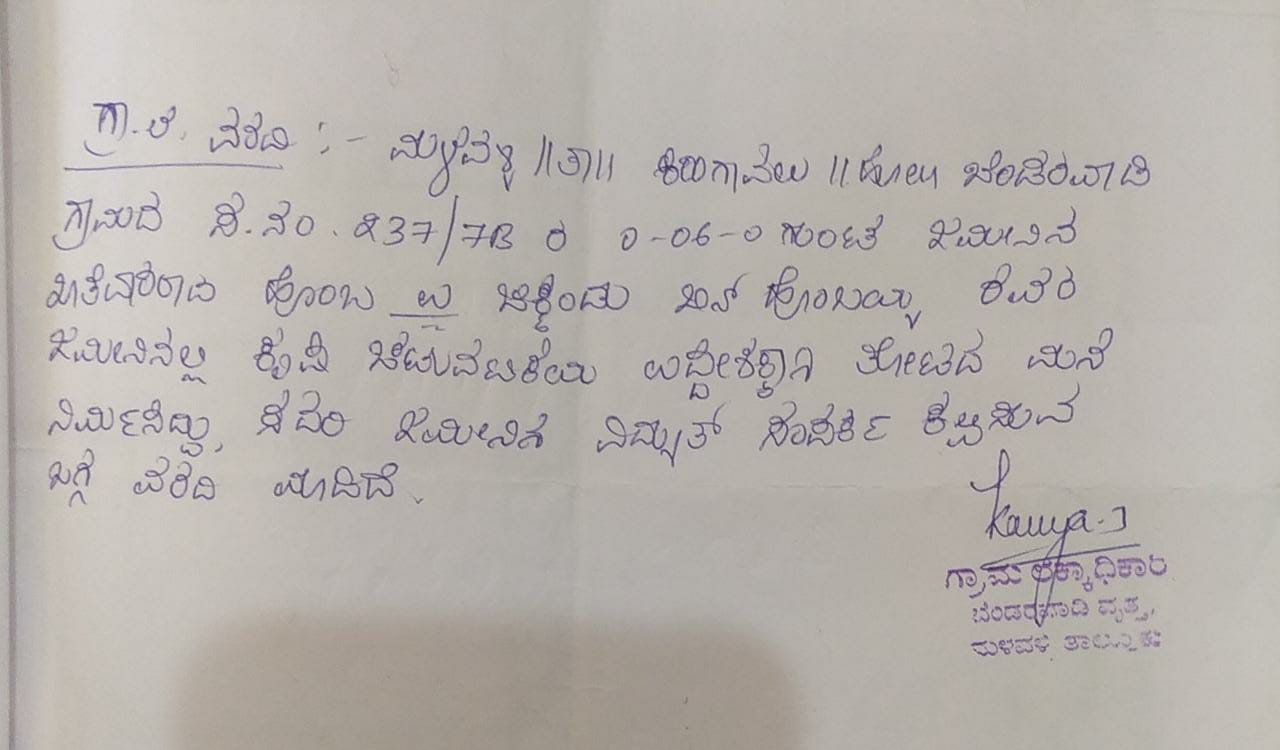 ಗ್ರಾ.ಲೆ. ವರದಿ :- ಮಳವಳ್ಳಿ ||ತಾ|| ಕಿರುಗಾವಲು ||ಹೋ|| ಚೆಂದರವಾಡಿ
ಗ್ರಾಮದ ಸ.ನಂ. 237/7B ರ 0-06-0 ಗುಂಟೆ ಜಮೀನಿನ
ಖಾತೆದಾರರಾದ ಹೊಂಬ ಉ|| ಚಿಕ್ಕೆಂದು ಬಿನ್ ಹೊಂಬಯ್ಯ ರವರ
ಜಮೀನಿನಲ್ಲಿ ಕೃಷಿ ಚಟುವಟಿಕೆಯ ಉದ್ದೇಶಕ್ಕಾಗಿ ತೋಟದ ಮನೆ
ನಿರ್ಮಿಸಿದ್ದು, ಸದರಿ ಜಮೀನಿಗೆ ವಿದ್ಯುತ್ ಸಂಪರ್ಕ ಕಲ್ಪಿಸುವ
ಬಗ್ಗೆ ವರದಿ ಮಾಡಿದೆ.
Kavya.J
ಗ್ರಾಮ ಲೆಕ್ಕಾಧಿಕಾರಿ
ಚೆಂದರವಾಡಿ ವೃತ್ತ,
ಮಳವಳ್ಳಿ ತಾಲ್ಲೂಕು